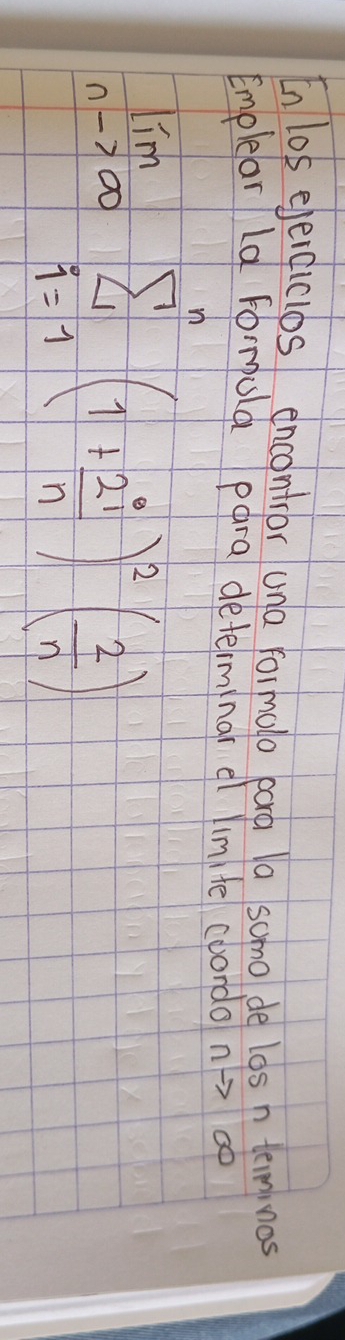 En los ejercicios encontrar una formula para la suma de los n terminos
Emplear la formula para determinar el limite cuando n -> ∞
lím n -> ∞ n Σ i = 1 (1 + 2i/n)² (2/n)